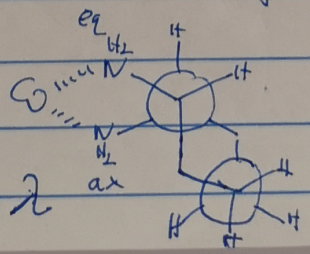 eq
H2
N
H
H
Co
N
H2
ax
λ
H
H
H
H